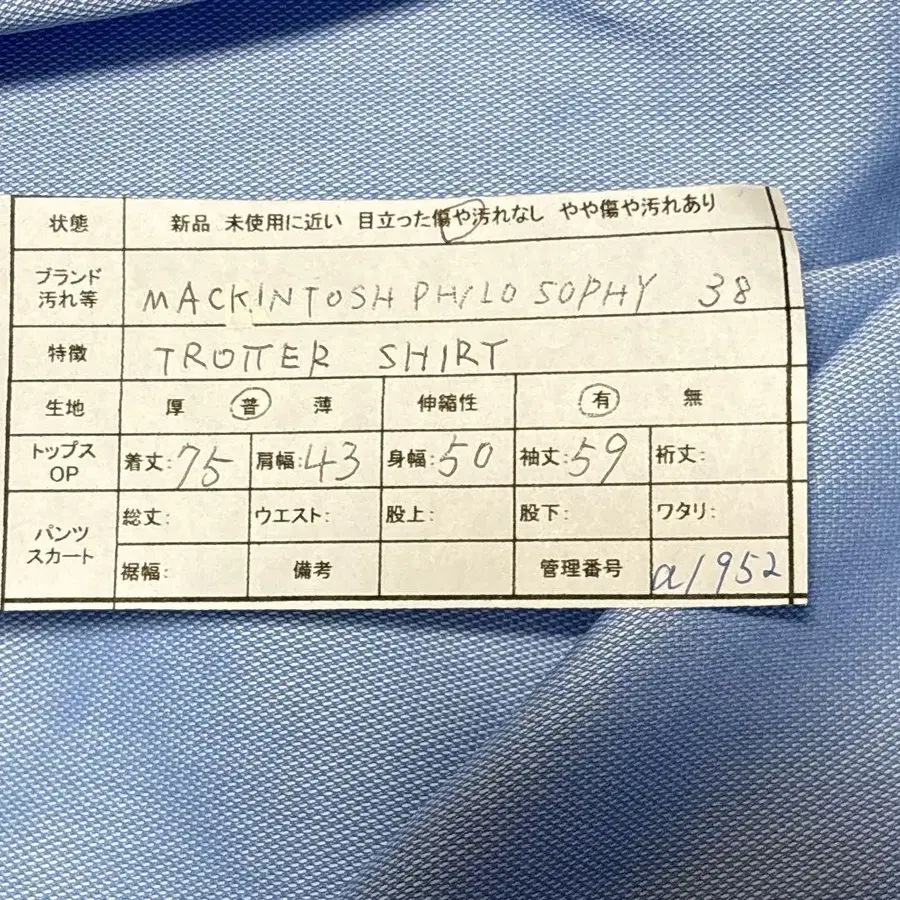 状態 新品 未使用に近い 目立った傷や汚れなし やや傷や汚れあり
ブランド
汚れ等 MACKINTOSH PHILOSOPHY 38
特徴 TROTTER SHIRT
生地 厚 普 薄 伸縮性 有 無
トップス
OP 着丈:75 肩幅:43 身幅:50 袖丈:59 裄丈:
パンツ
スカート 総丈: ウエスト: 股上: 股下: ワタリ:
裾幅: 備考 管理番号 a1952